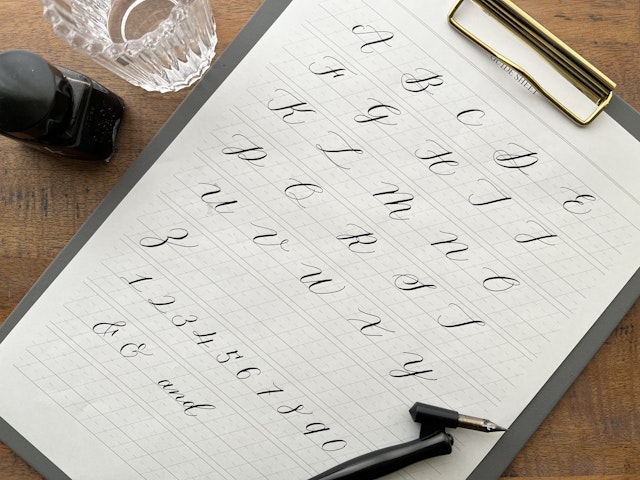 GUIDE SHEET
A B C D E
F G H I J
K L M N O
P Q R S T
U V W X Y
Z
1 2 3 4 5 6 7 8 9 0
& & and